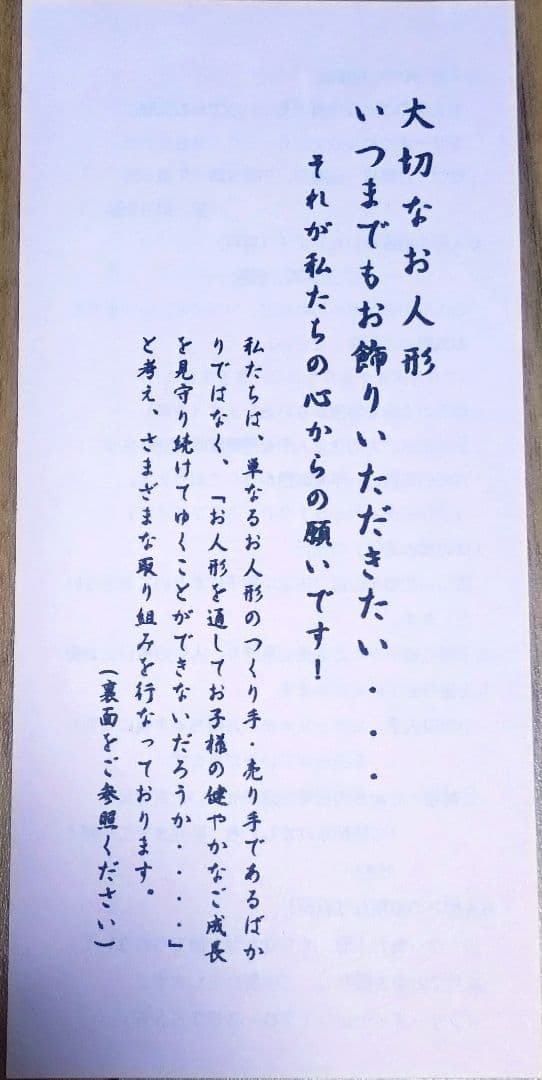 大切なお人形
いつまでもお飾りいただきたい・・・
それが私たちの心からの願いです！
私たちは、単なるお人形のつくり手・売り手であるばか
りではなく、「お人形を通してお子様の健やかなご成長
を見守り続けてゆくことができないだろうか・・・」
と考え、さまざまな取り組みを行なっております。
（裏面をご参照ください）